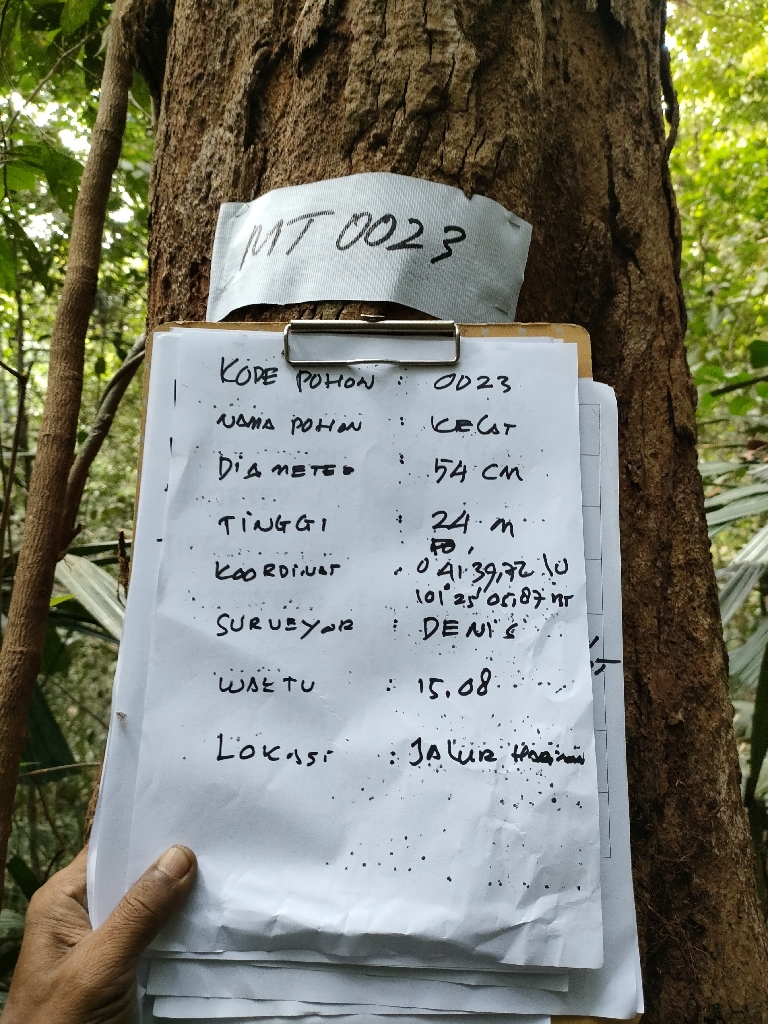 MT 0023
KODE POHON : 0023
NAMA POHON : KELAT
DIAMETER : 54 CM
TINGGI : 24 M
KOORDINAT : 0° 41' 39,72" LU
101° 25' 05,87" BT
SURVEYOR : DENIS
WAKTU : 15.08
LOKASI : JALUR